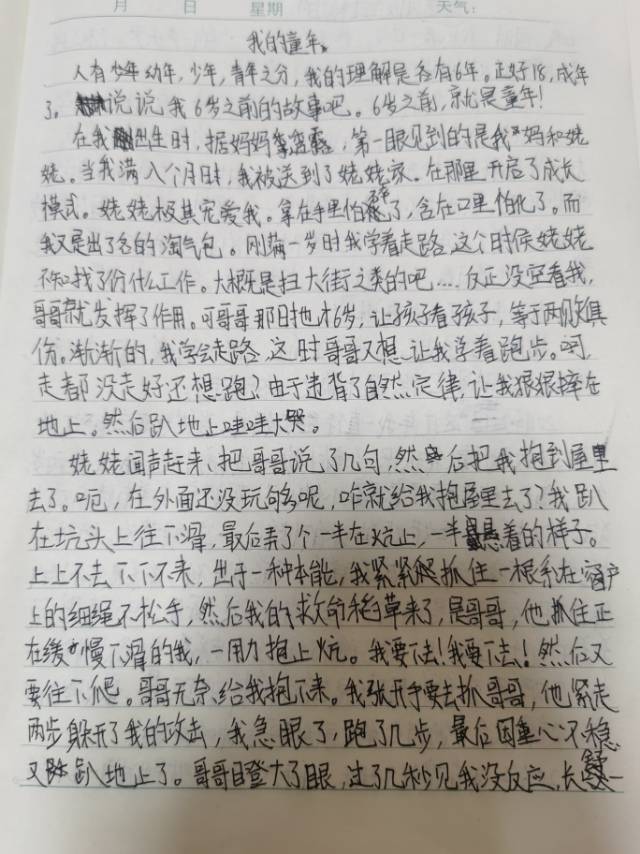 月 日 星期 天气:
我的童年。
人有少年幼年,少年,青年之分,我的理解是各有6年。正好18,成年
了。说说我6岁之前的故事吧。6岁之前,就是童年!
在我出生时,据妈妈透露,第一眼见到的是我妈和姥
姥。当我满八个月时,我被送到了姥姥家。在那里开启了成长
模式。姥姥极其宠爱我。拿在手里怕碎了,含在口里怕化了。而
我又是出了名的淘气包。刚满一岁时我学着走路,这个时候姥姥
不知找了份什么工作。大概是扫大街之类的吧....反正没空看我,
哥哥就发挥了作用。可哥哥那时也才6岁,让孩子看孩子,等于两败俱
伤。渐渐的,我学会走路,这时哥哥又想让我学着跑步。呵,
走都没走好还想跑?由于违背了自然定律,让我狠狠摔在
地上。然后趴地上哇哇大哭。
姥姥闻声赶来,把哥哥说了几句,然后把我抱到屋里
去了。呃,在外面还没玩够呢,咋就给我抱屋里去了?我趴
在坑头上往下滑,最后弄了个一半在炕上,一半悬着的样子。
上上不去下下不来,出于一种本能,我紧紧抓住一根系在窗户
上的细绳不松手,然后我的救命稻草来了,是哥哥,他抓住正
在缓慢下滑的我,一用力抱上炕。我要下去!我要下去!然后又
要往下爬。哥哥无奈给我抱下来。我张开手要去抓哥哥,他紧走
两步躲开了我的攻击,我急眼了,跑了几步,最后因重心不稳
又趴地上了。哥哥瞪大了眼,过了几秒见我没反应,长舒一